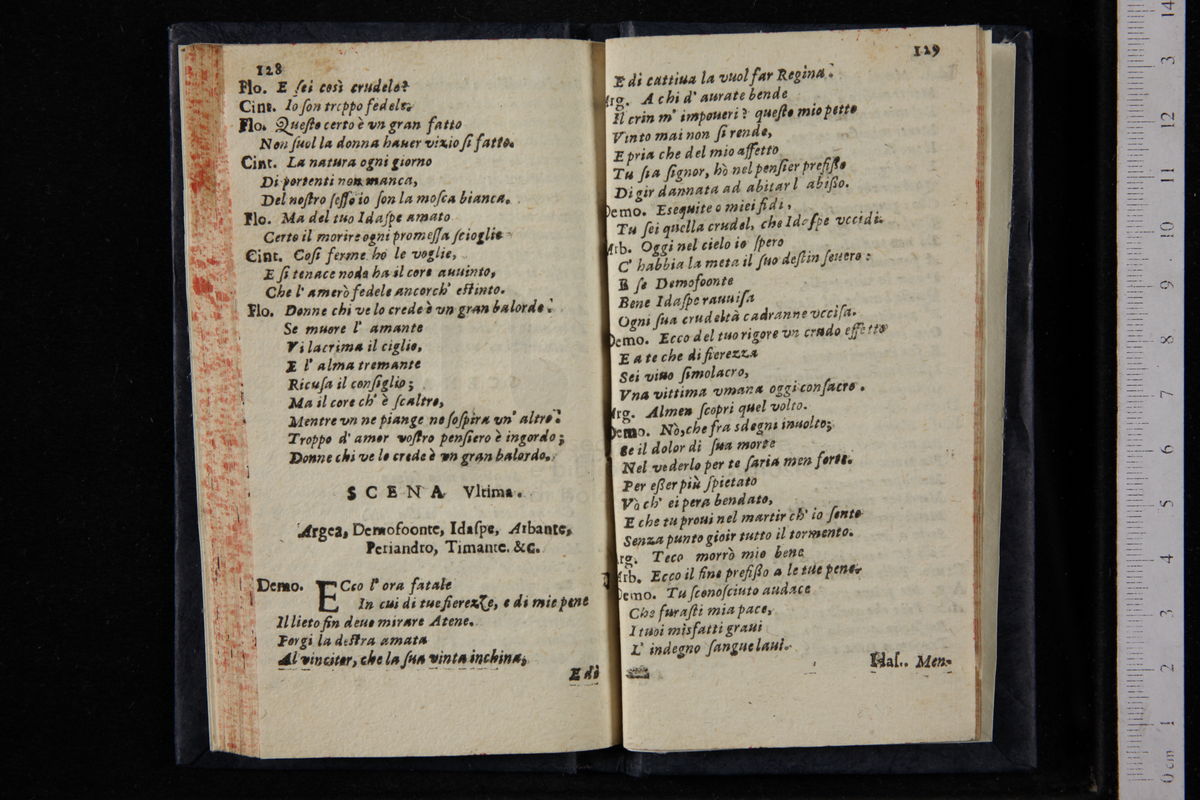 128
Flo. E ſei così crudele?
Cint. Io ſon troppo fedele.
Flo. Queſto certo è vn gran fatto
Non ſuol la donna hauer vizio ſi fatto.
Cint. La natura ogni giorno
Di portenti non manca,
Del noſtro ſeſſo io ſon la moſca bianca.
Flo. Ma del tuo Idaſpe amato
Certo il morire ogni promeſſa ſcioglie
Cint. Coſi ferme hò le voglie,
E ſi tenace nodo ha il core auuinto,
Che l' amerò fedele ancorch' eſtinto.
Flo. Donne chi ve lo crede è vn gran balordo.
Se muore l' amante
Vi lacrima il ciglio,
E l' alma tremante
Ricuſa il conſiglio;
Ma il core ch' è ſcaltro,
Mentre vn ne piange ne ſoſpira vn' altro.
Troppo d' amor voſtro penſiero è ingordo;
Donne chi ve lo crede è vn gran balordo.
SCENA Vltima.
Argea, Demofoonte, Idaſpe, Arbante,
Periandro, Timante. &c.
Demo. ECco l' ora fatale
In cui di tue fierezze, e di mie pene
Il lieto fin deue mirare Atene.
Porgi la deſtra amata
Al vincitor, che la ſua vinta inchina,
E dì
129
E di cattiua la vuol far Regina.
Arg. A chi d' aurate bende
Il crin m' impoueri? queſto mio petto
Vinto mai non ſi rende,
E pria che del mio affetto
Tu ſia ſignor, hò nel penſier prefiſſo
Di gir dannata ad abitar l abiſſo.
Demo. Eſequite o miei fidi,
Tu ſei quella crudel, che Idaſpe vccidi.
Arb. Oggi nel cielo io ſpero
C' habbia la meta il ſuo deſtin ſeuero:
E ſe Demofoonte
Bene Idaſpe rauuiſa
Ogni ſua crudeltà cadranne vcciſa.
Demo. Ecco del tuo rigore vn crudo effetto
E a te che di fierezza
Sei viuo ſimolacro,
Vna vittima vmana oggi conſacro.
Arg. Almen ſcopri quel volto.
Demo. Nò, che fra sdegni inuolto;
Se il dolor di ſua morte
Nel vederlo per te ſaria men forte.
Per eſſer più ſpietato
Vò ch' ei pera bendato,
E che tu proui nel martir ch' io ſento
Senza punto gioir tutto il tormento.
Arg. Teco morrò mio bene
Arb. Ecco il fine prefiſſo a le tue pene.
Demo. Tu ſconoſciuto audace
Che furaſti mia pace,
I tuoi misfatti graui
L' indegno ſangue laui.
Idaſ. Men-